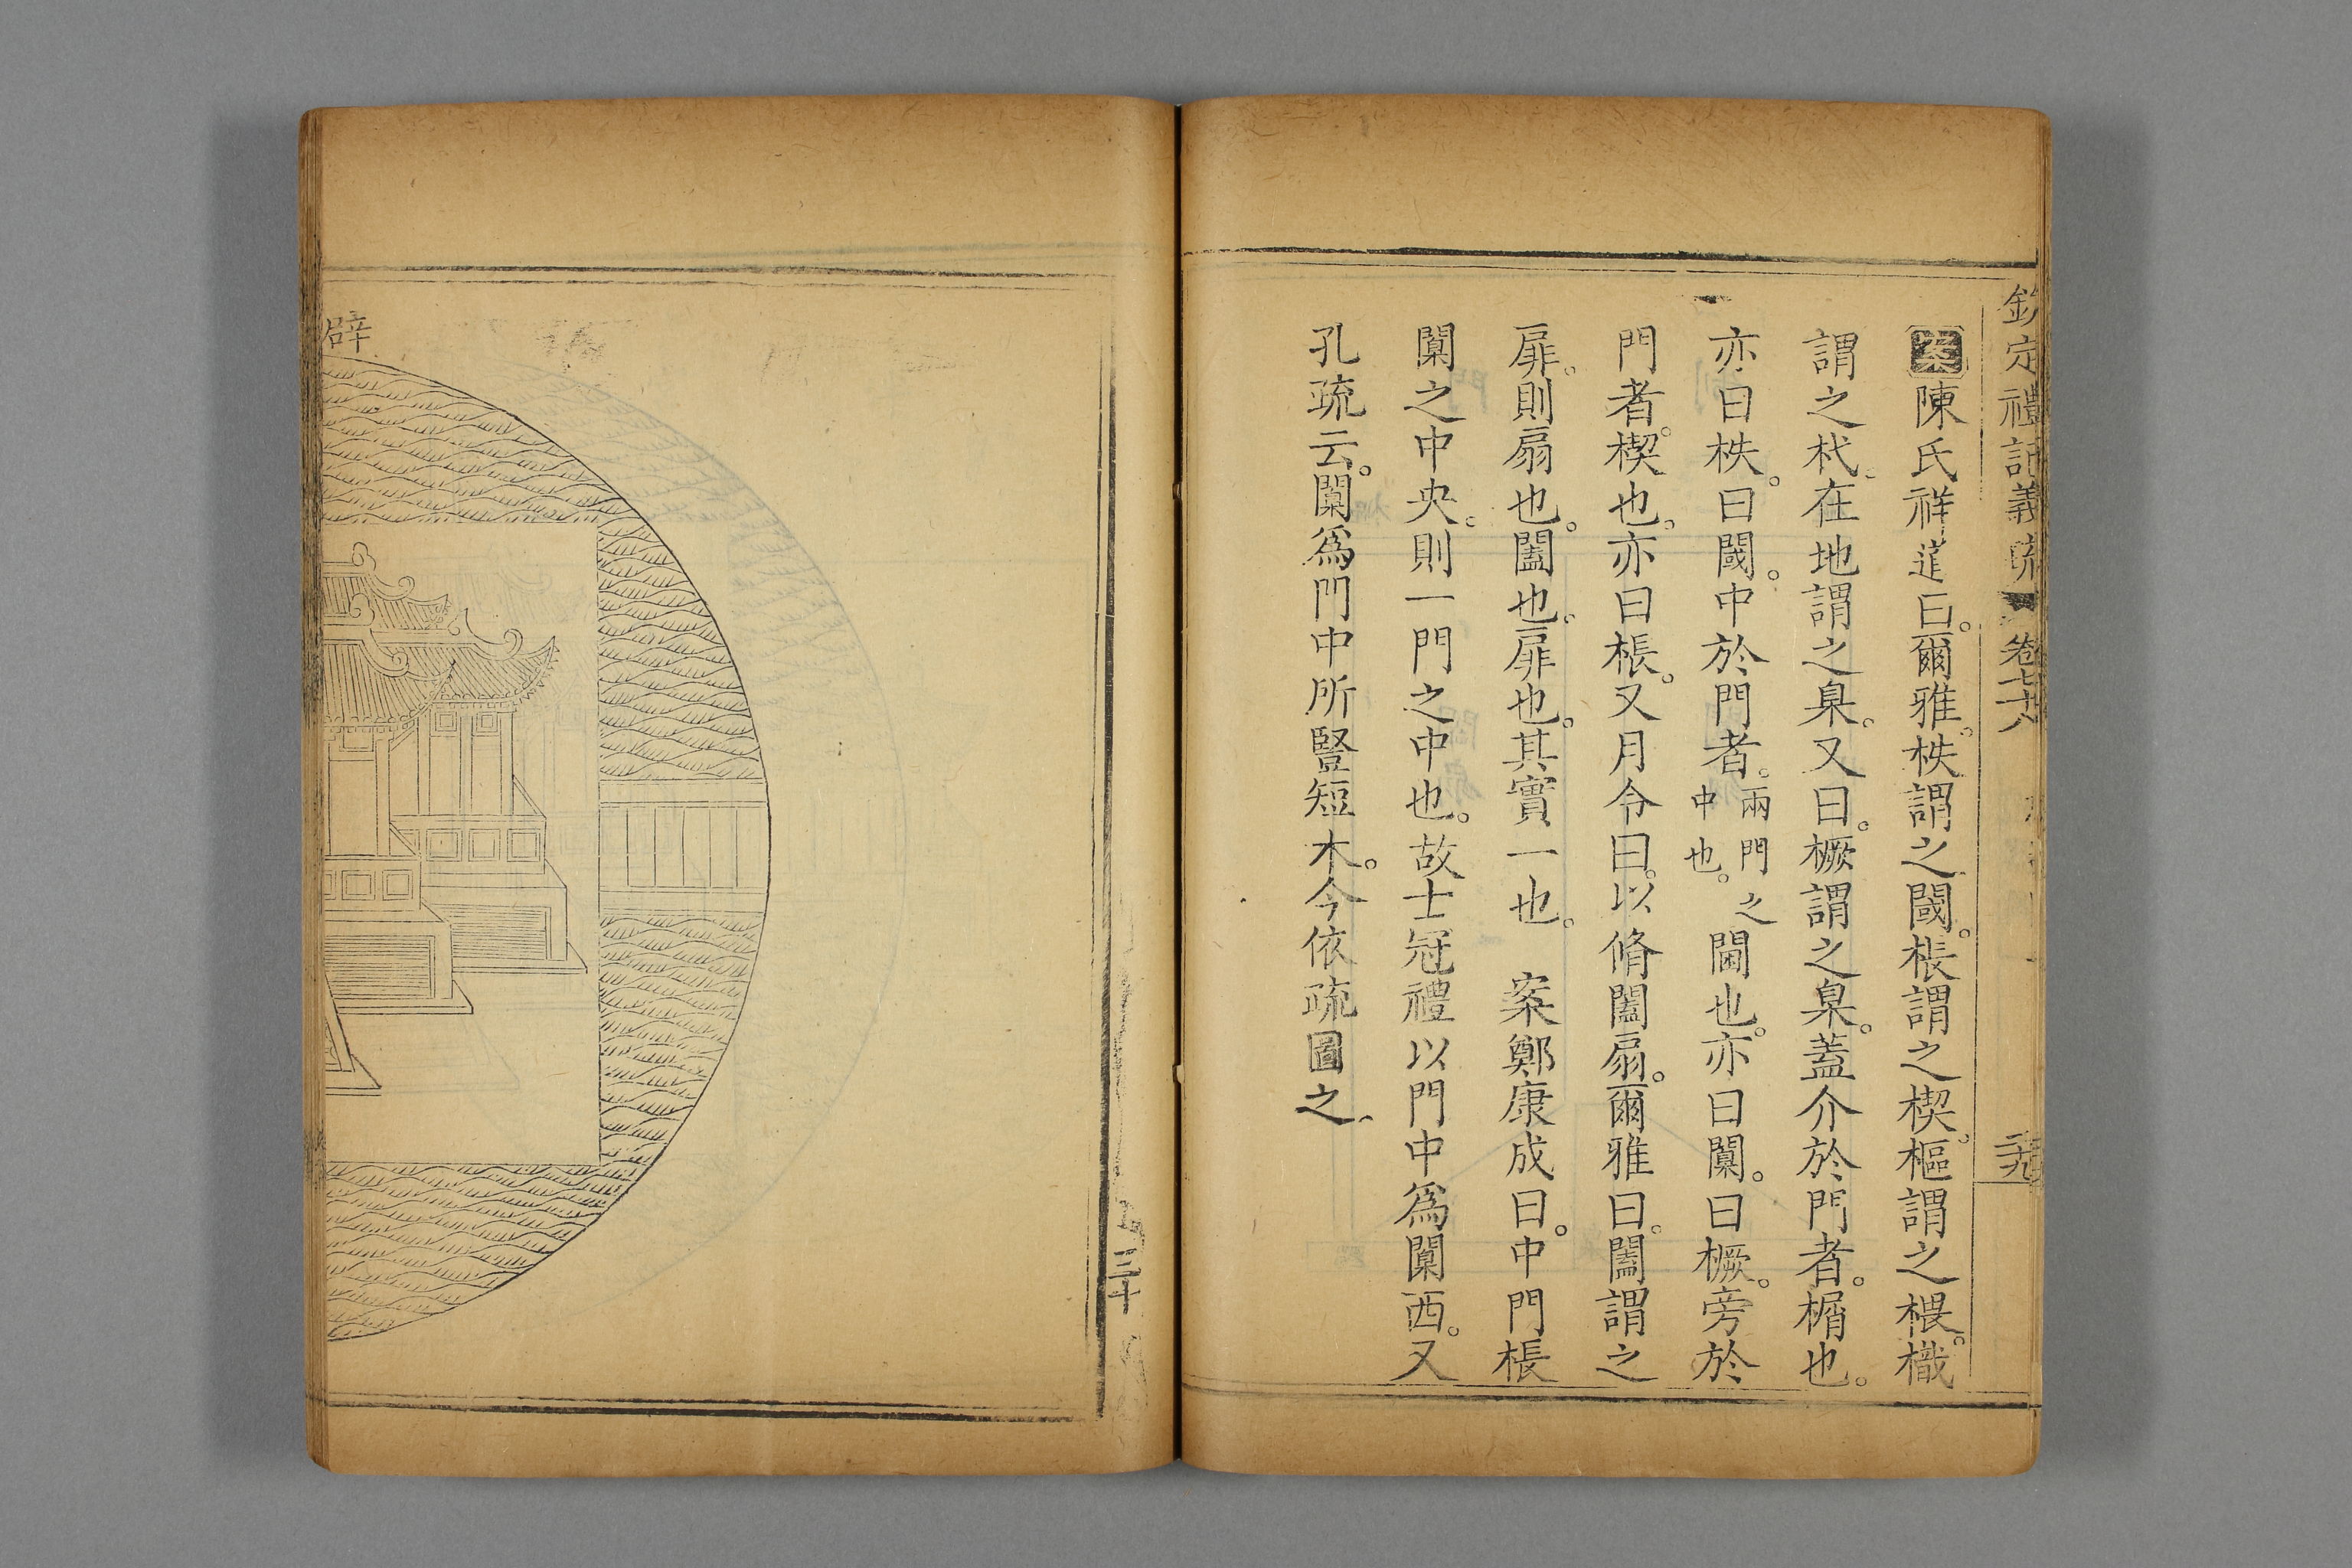 欽定禮記義疏 卷七十八
二十九
案陳氏祥道曰。爾雅。柣謂之閾。棖謂之楔。樞謂之椳。樴
謂之杙。在地謂之臬。又曰。橛謂之臬。蓋介於門者。楣也。
亦曰柣。曰閾。中於門者。兩門之中也。闑也。亦曰闑。曰橛。旁於
門者。楔也。亦曰棖。又月令曰。以脩闔扇。爾雅曰。闔謂之
扉。則扇也。闔也。扉也。其實一也。 案鄭康成曰。中門棖
闑之中央。則一門之中也。故士冠禮以門中爲闑西。又
孔疏云。闑爲門中所豎短木。今依疏圖之。
三十
辟